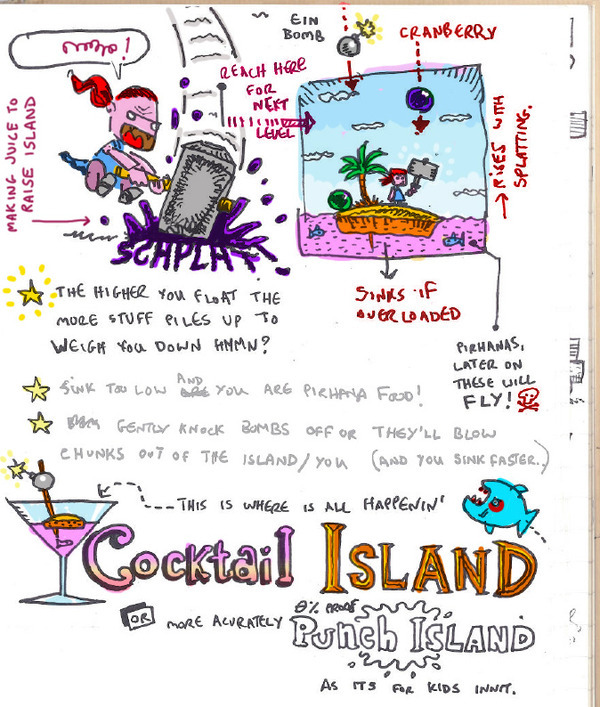 EIN
BOMB
CRANBERRY
REACH HERE
FOR
NEXT
LEVEL
MAKING JUICE TO
RAISE ISLAND
RISES WITH
SPLATTING.
SCHPLAT
SINKS IF
OVERLOADED
THE HIGHER YOU FLOAT THE
MORE STUFF PILES UP TO
WEIGH YOU DOWN HMMN?
PIRHANAS,
LATER ON
THESE WILL
FLY!
SINK TOO LOW AND YOU ARE PIRHANA FOOD!
GENTLY KNOCK BOMBS OFF OR THEY'LL BLOW
CHUNKS OUT OF THE ISLAND/YOU (AND YOU SINK FASTER..)
THIS IS WHERE IS ALL HAPPENIN'
Cocktail ISLAND
OR MORE ACURATELY 0% PROOF
Punch ISLAND
AS ITS FOR KIDS INNIT.